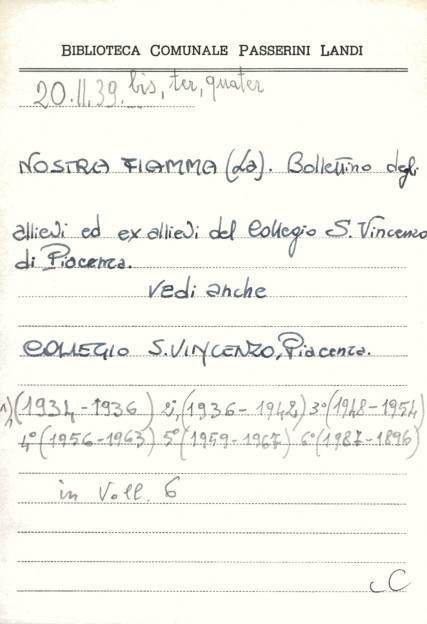 BIBLIOTECA COMUNALE PASSERINI LANDI
20.II.39. bis, ter, quater
NOSTRA FIAMMA (La). Bollettino degli
allievi ed ex allievi del Collegio S. Vincenzo
di Piacenza.
Vedi anche
COLLEGIO S. VINCENZO, Piacenza.
1°) (1934-1936) 2°, (1936-1942) 3° (1948-1954)
4° (1956-1963) 5° (1959-1967) 6° (1987-1896)
in Voll. 6
C